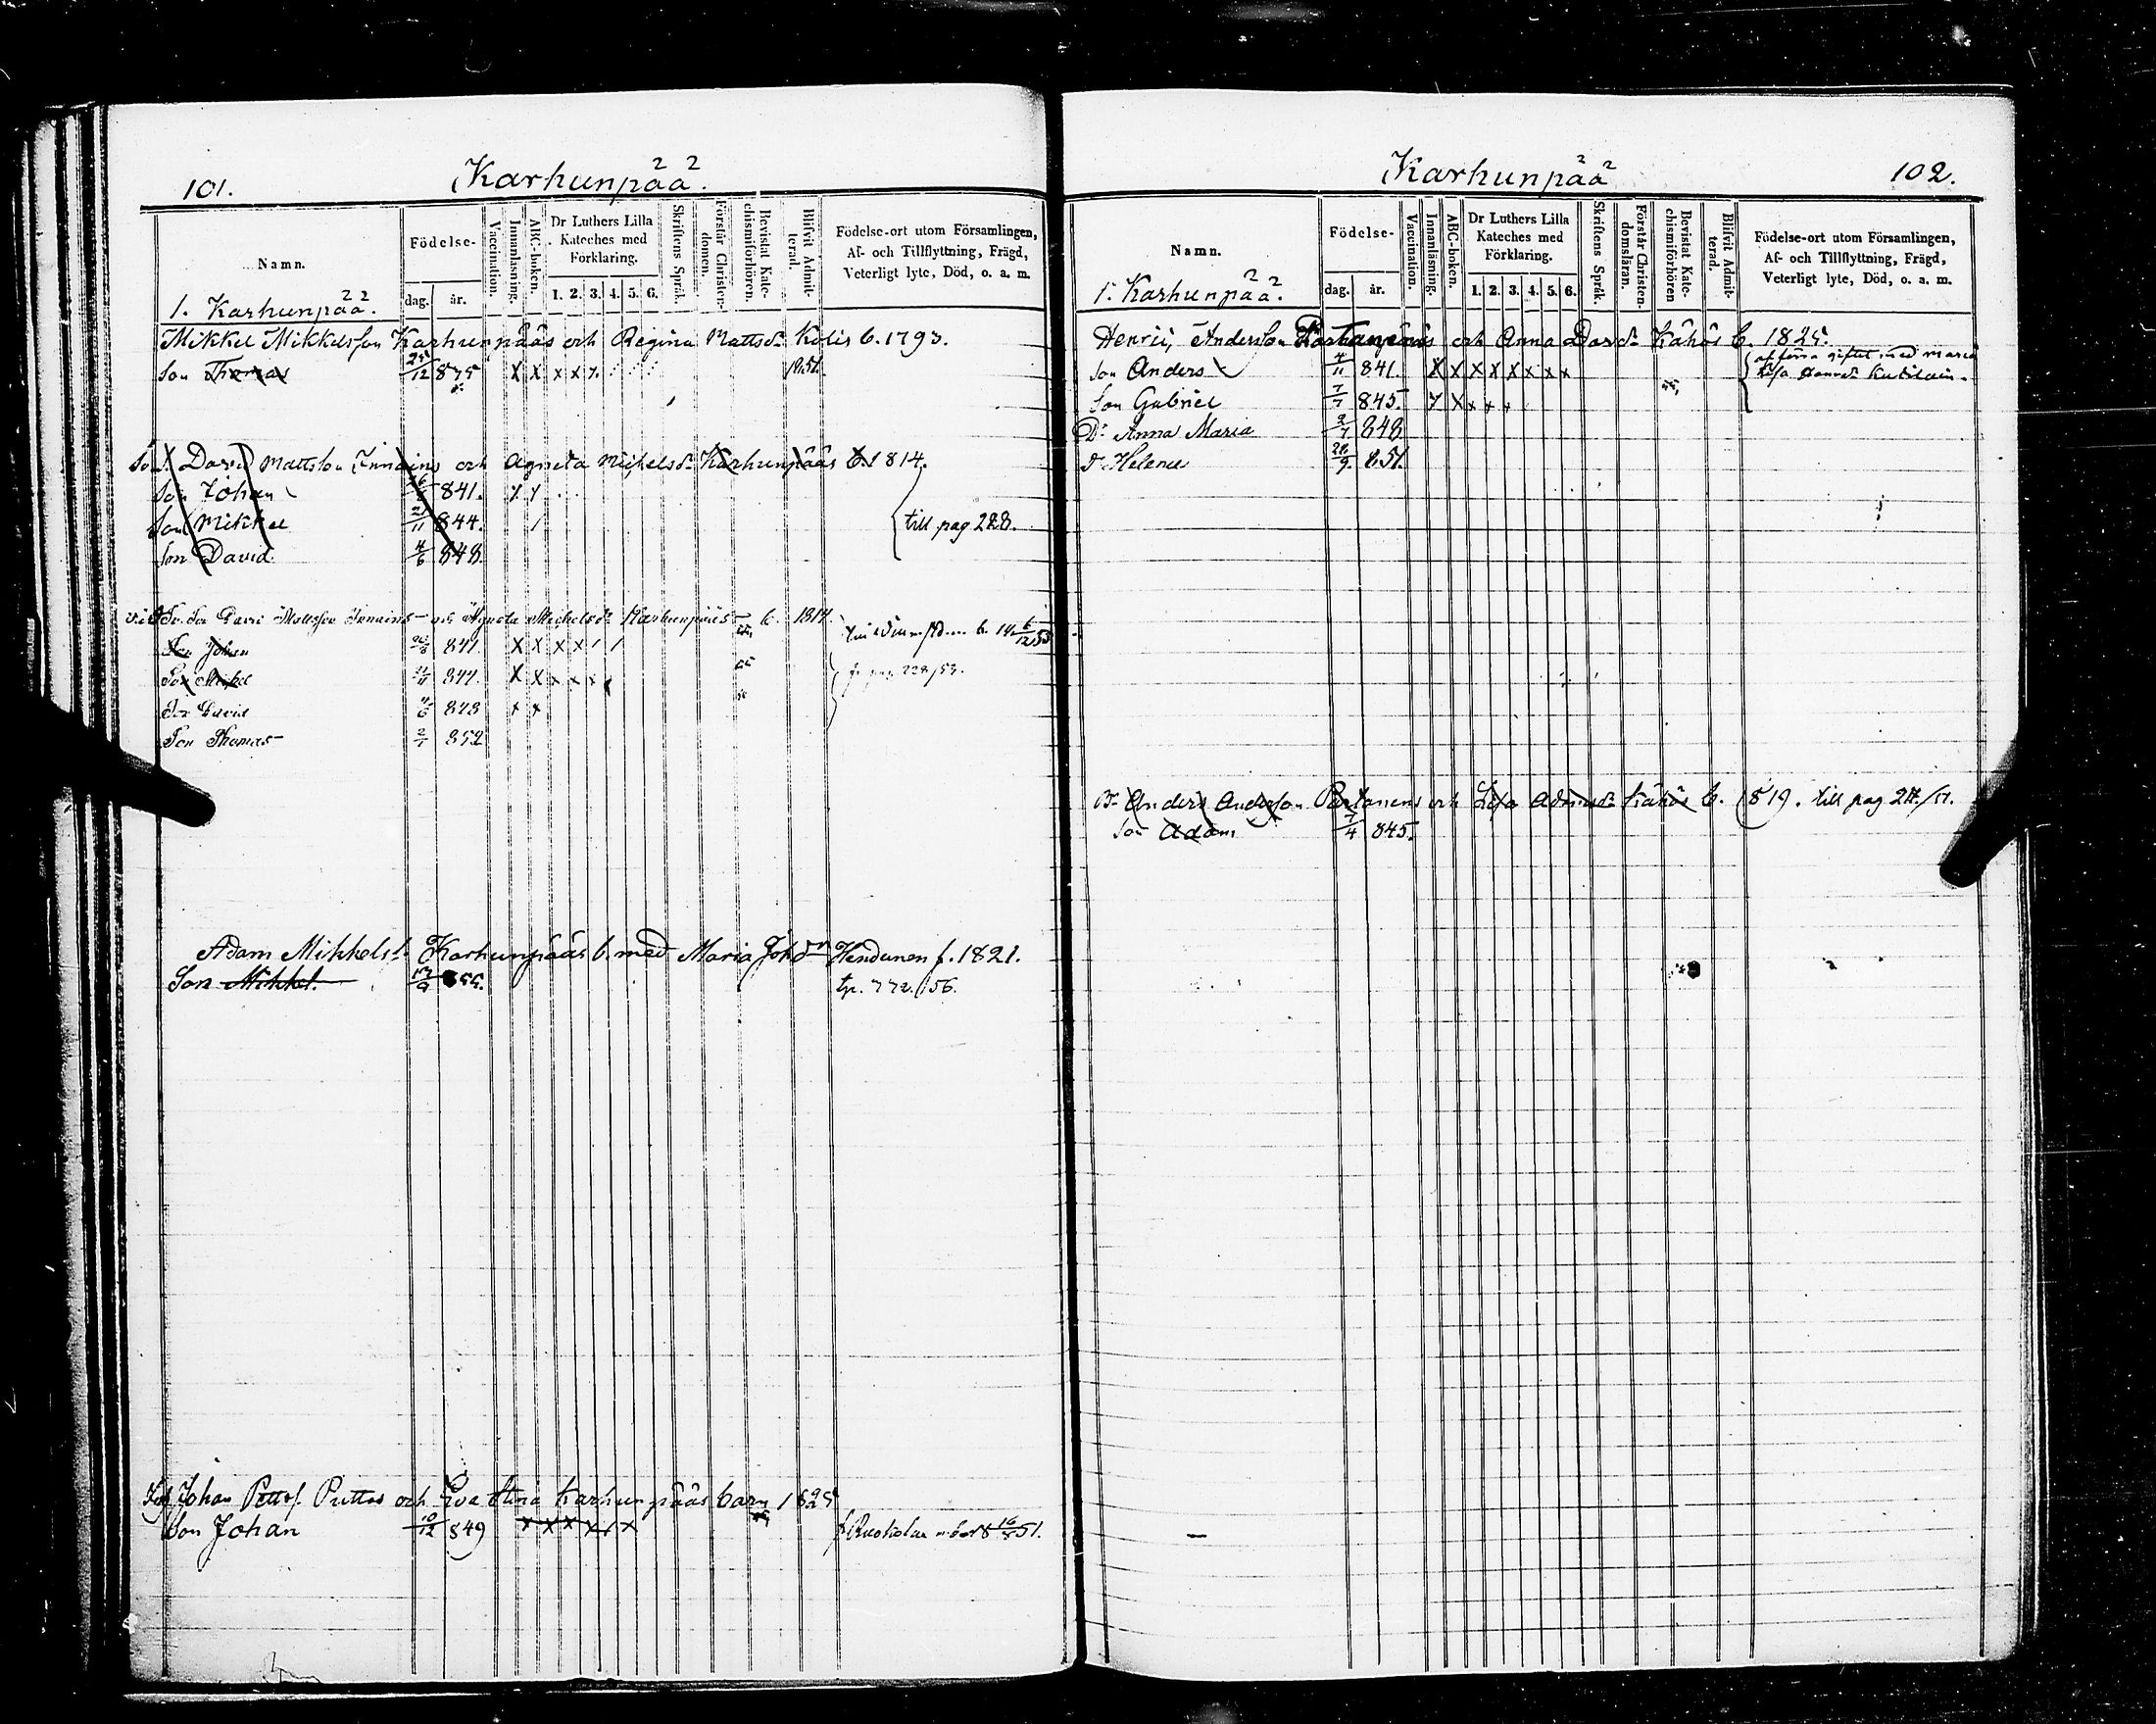 101.
Karhunpää.
Namn.
Födelse-
dag. år.
Vaccination.
Innanläsning.
ABC-boken.
Dr Luthers Lilla Kateches med Förklaring.
1. 2. 3. 4. 5. 6.
Skriftens Språk.
Förstår Christendomen.
Bevistat Katechismiförhören.
Blifvit Admitterad.
Födelse-ort utom Församlingen,
Af- och Tillflyttning, Frägd,
Veterligt lyte, Död, o. a. m.
1. Karhunpää.
Mikkel Mikkelsson Karhunpääs och Regina Mattsdr Kolis b. 1793.
Son Thomas 25/12 835 X X x x 1851.
David Mattson Innains och Agneta Michelsdr Karhunpääs b. 1814.
Son Johan 841.
Son Mikkel 21/11 844. till pag 228.
Son David 4/6 848.
David Mattsson Innains och Agneta Michelsdr Karhunpääs b. 1814.
Son Johan 841. X X X X
Son Mikel 21/11 844. X X x x
Son David 4/6 848 x x
Son Thomas 852
Adam Mikkelss. Karhunpääs b. med Maria Johdr Hendunen f. 1821.
Son Mikkel. 855. tp. 772./56.
Johan Petters. Puttos och Eva Stina Karhunpääs barn 1825
Son Johan 10/12 849 x x x x x
102.
Karhunpää
Namn.
Födelse-
dag. år.
Vaccination.
Innanläsning.
ABC-boken.
Dr Luthers Lilla Kateches med Förklaring.
1. 2. 3. 4. 5. 6.
Skriftens Språk.
Förstår Christendomsläran.
Bevistat Katechismiförhören
Blifvit Admitterad.
Födelse-ort utom Församlingen,
Af- och Tillflyttning, Frägd,
Veterligt lyte, Död, o. a. m.
1. Karhunpää.
Henric Andersson och Anna Davdr Kähös b. 1825.
Son Anders 4/11 841. X X X X X x x x af förra giftet med Maria
Son Gabriel 7/7 845. X x x x
Dr Anna Maria 848
Dr Helena 28/9 851.
Anders Andersson Partanens och Lisa Adamsdr Kähös b. 1819. till pag
Son Adam 7/4 845.